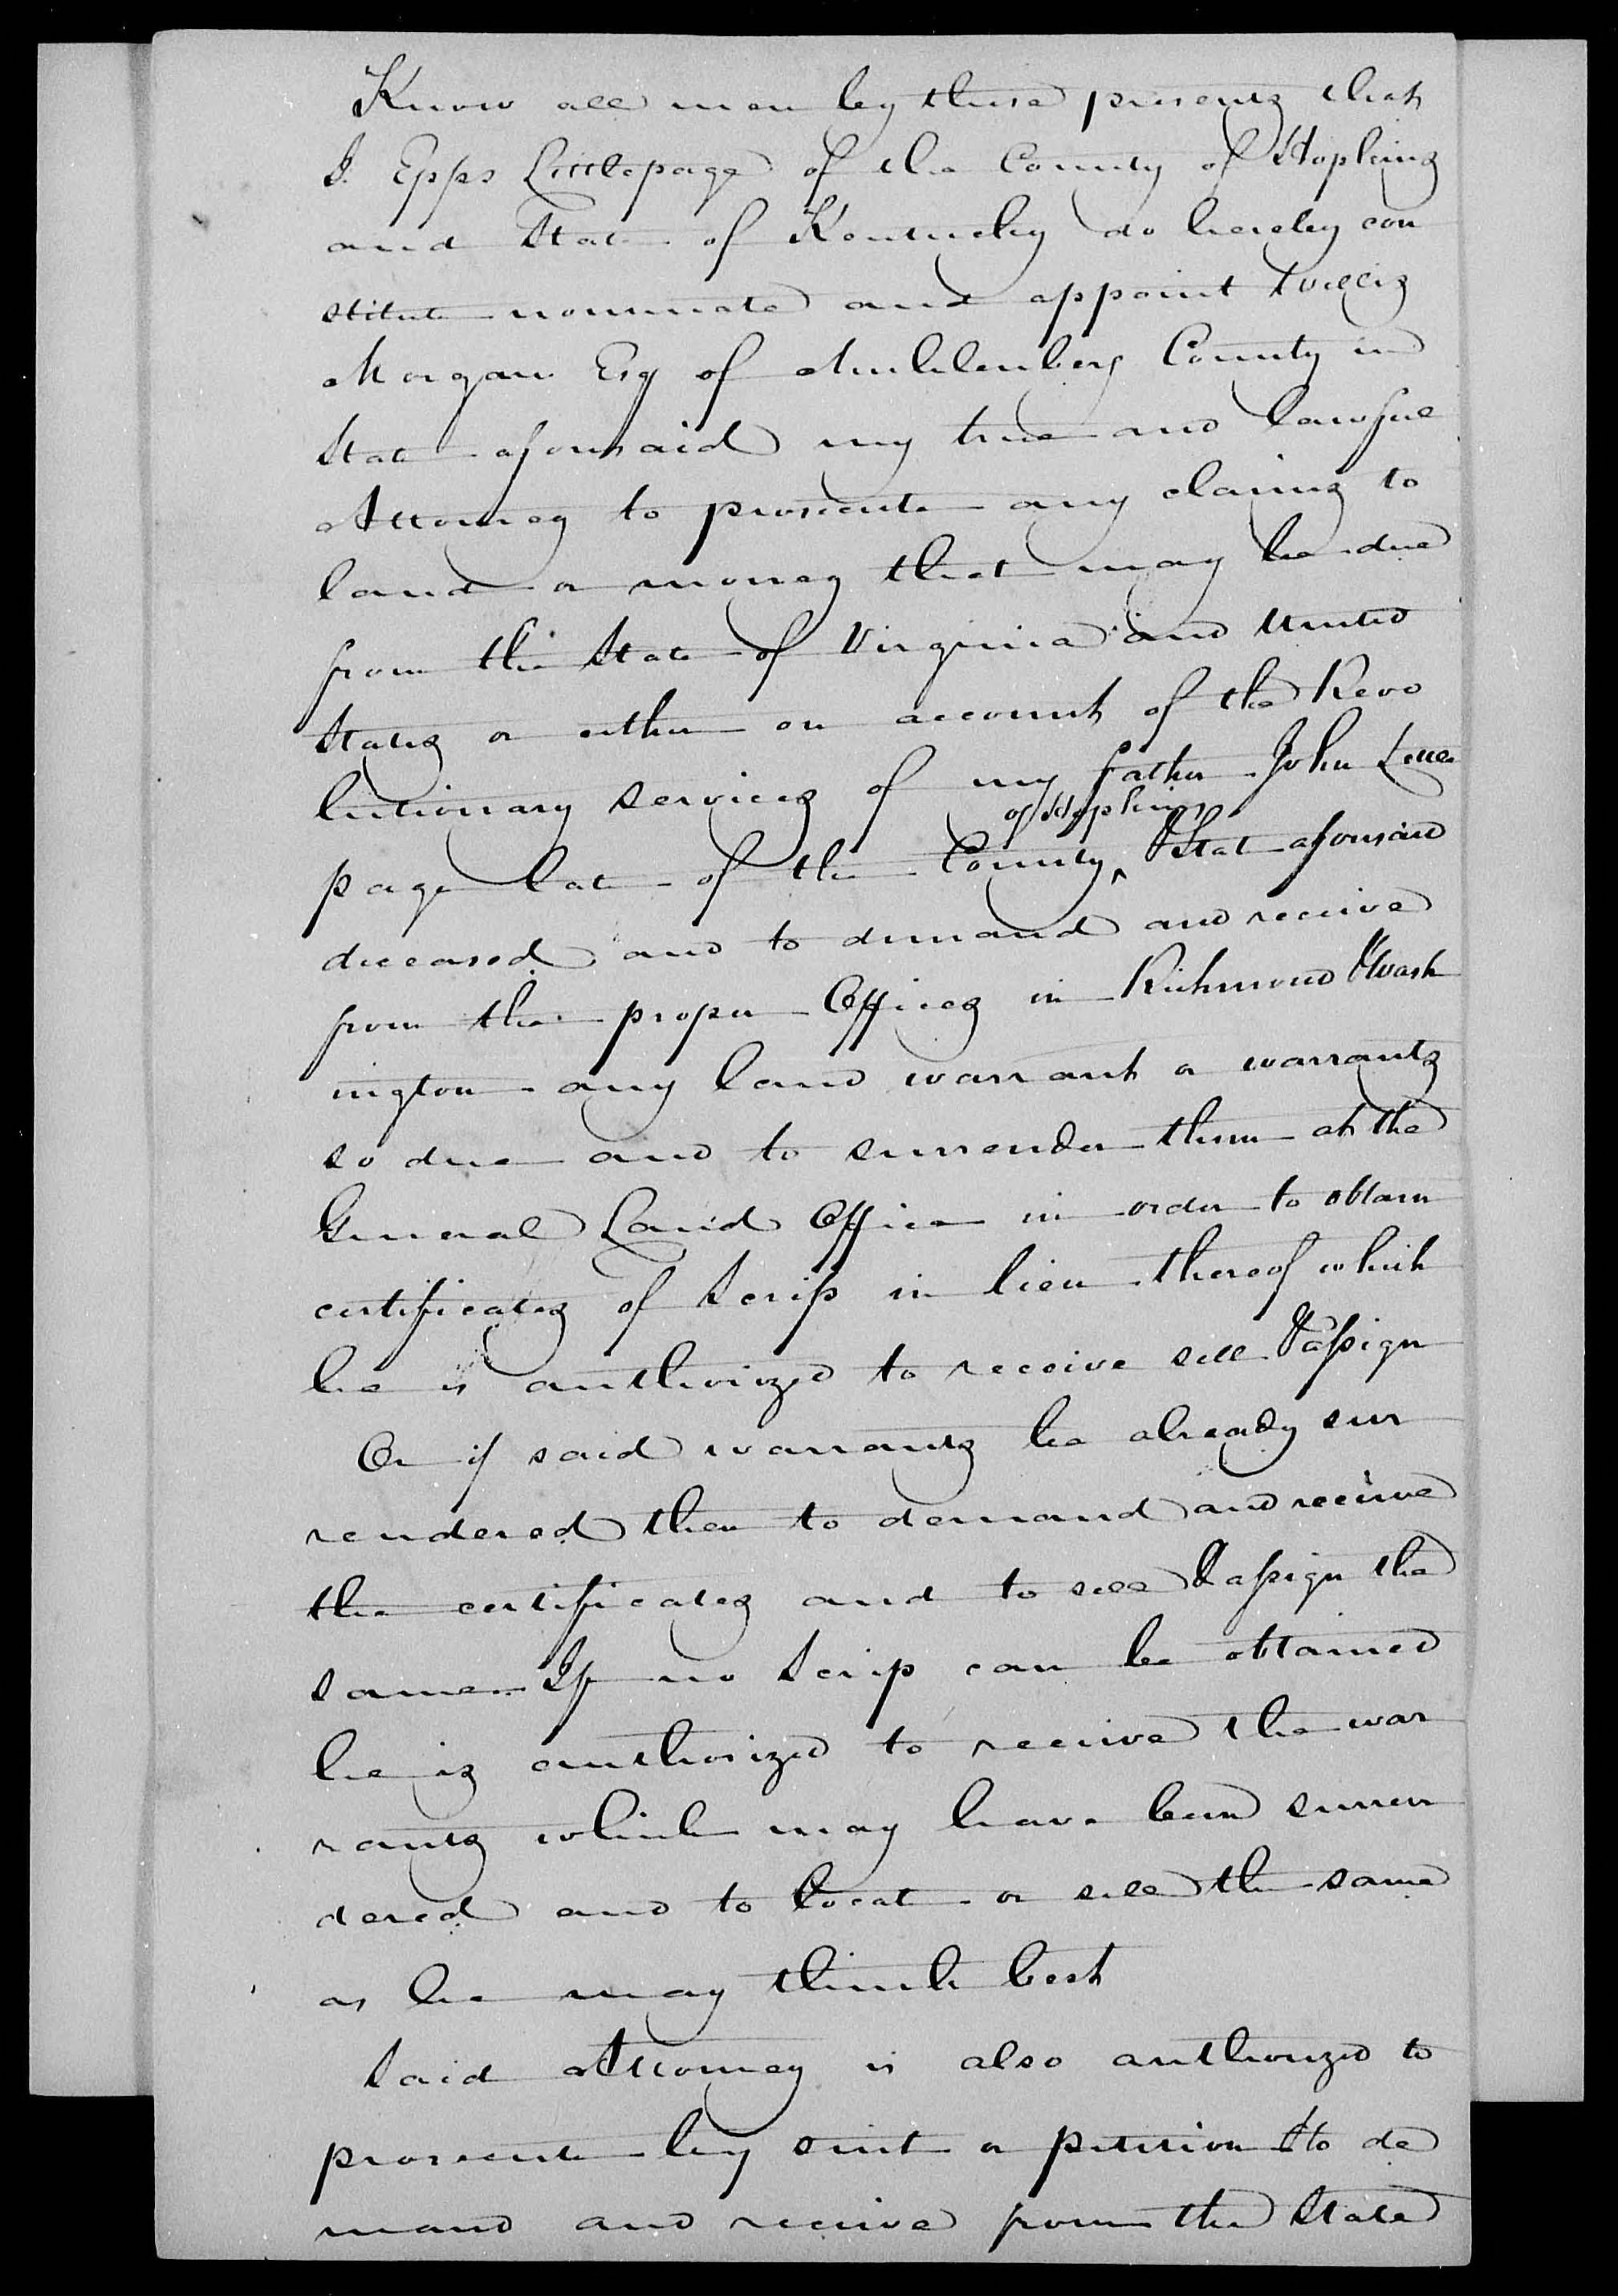 Know all men by these presents that
I. Epps Littlepage of the County of Hopkins
and State of Kentucky do hereby con
stitute nominate and appoint Willis
Morgan Esq of Muhlenberg County in
State aforesaid my true and lawful
Attorney to prosecute any claims to
land or money that may be due
from the State of Virginia and United
States or either on account of the Revo
lutionary services of my father John Little
page late of the County of Hopkins & State aforesaid
deceased and to demand and receive
from the proper Offices in Richmond & Wash
ington any land warrant or warrants
so due and to surrender them at the
General Land Office in order to obtain
certificates of Scrip in lieu thereof which
he is authorized to receive sell & assign
Or if said warrants be already sur
rendered then to demand and receive
the certificates and to sell & assign the
same. If no Scrip can be obtained
he is authorized to receive the war
rants which may have been surren
dered and to locate or sell the same
as he may think best
Said Attorney is also authorized to
prosecute by suit or petition & to de
mand and receive from the State